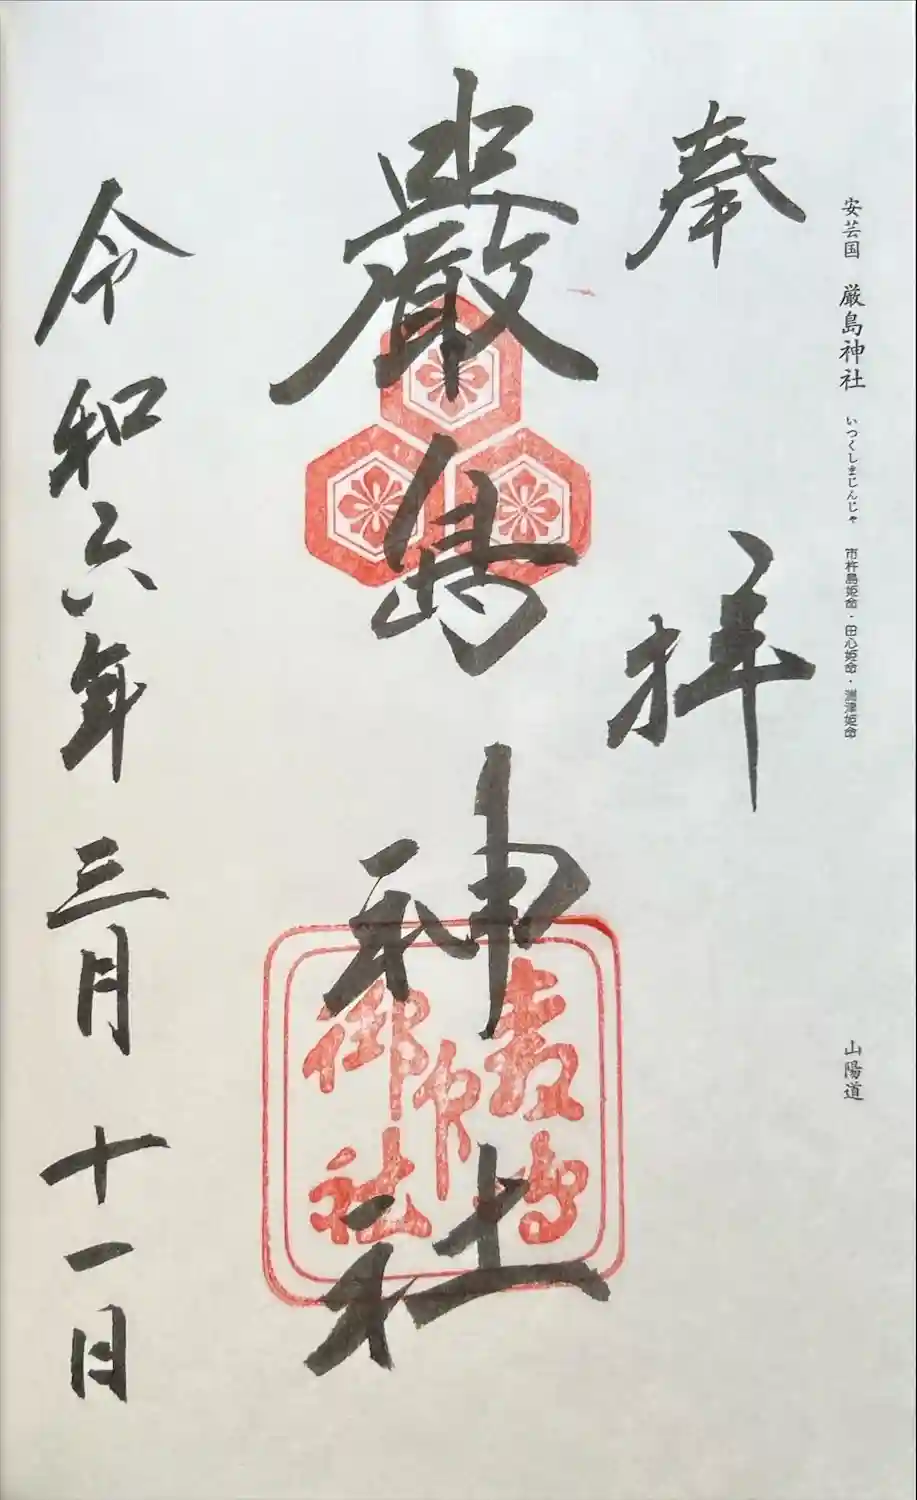 安芸国 厳島神社 いつくしまじんじゃ 市杵島姫命・田心姫命・湍津姫命
山陽道
奉拝
嚴島神社
令和六年三月十一日